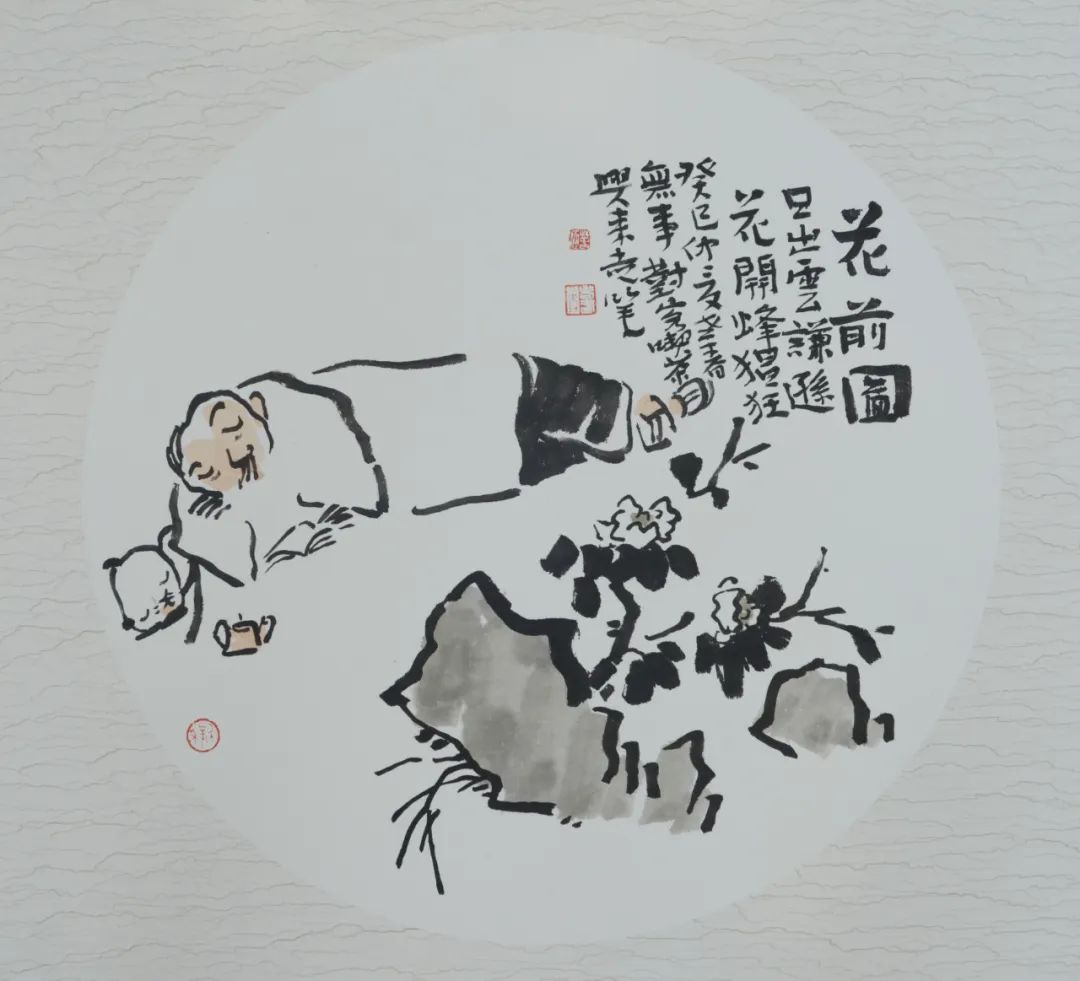 花前圖
日出雲謙遜
花開蜂猖狂
癸巳仲夏
無事對客喫茶
興來走筆